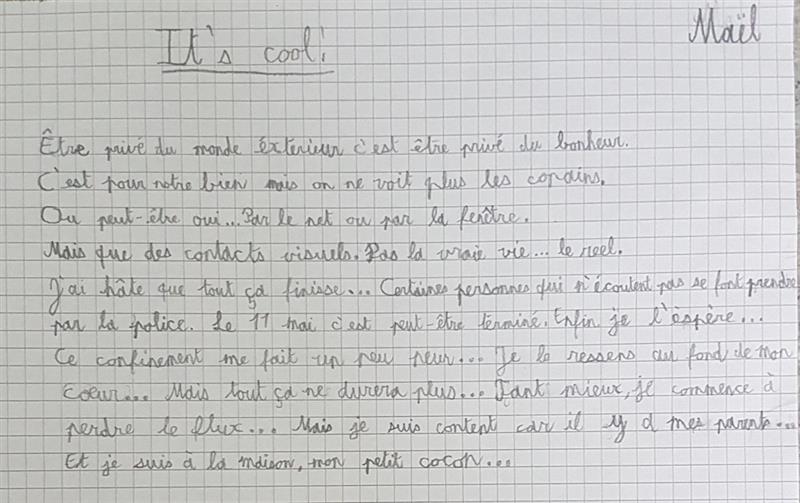 Maïl
It's cool!
Être privé du monde éxterieur c'est être privé du bonheur.
C'est pour notre bien mais on ne voit plus les copains.
Ou peut-être oui... Par le net ou par la fenêtre.
Mais que des contacts visuels. Pas la vraie vie... le reel.
J'ai hâte que tout ça finisse... Certaines personnes qui n'écoutent pas se font prendre
par la police. Le 11 mai c'est peut-être terminé. Enfin je l'éspère...
Ce confinement me fait un peu peur... Je le ressens au fond de mon
coeur... Mais tout ça ne durera plus... Tant mieux, je commence à
perdre le flux... Mais je suis content car il y a mes parents...
Et je suis à la maison, mon petit cocon...